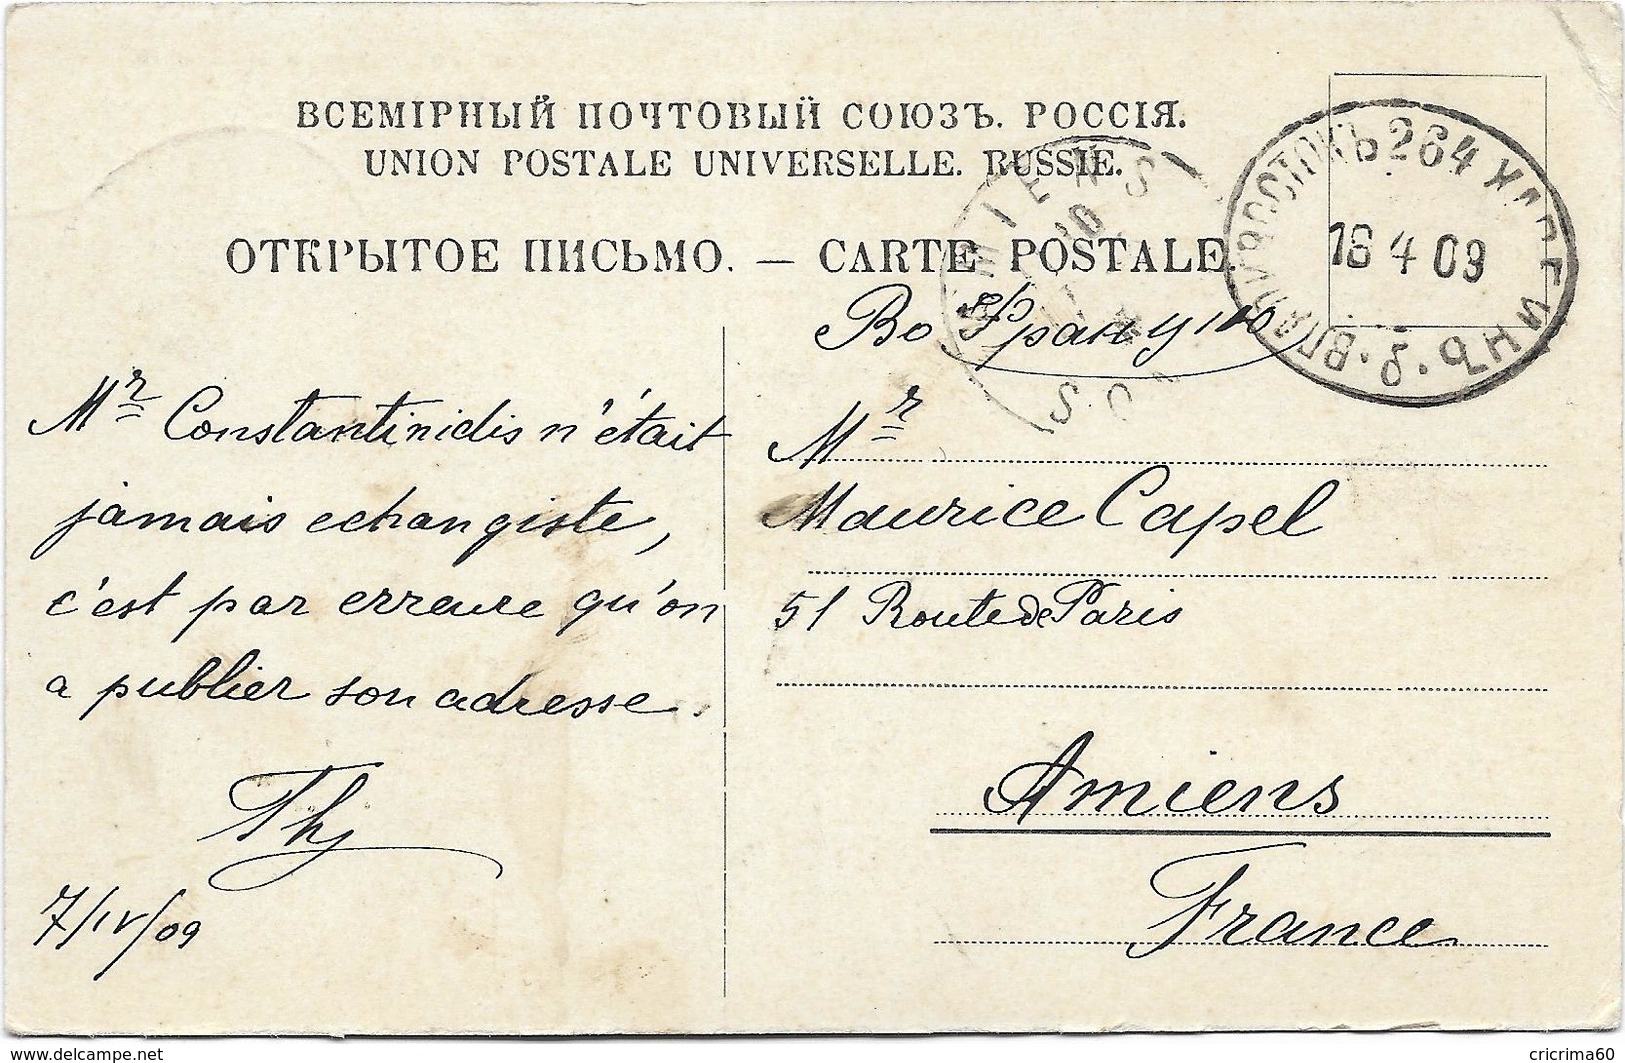 ВСЕМІРНЫЙ ПОЧТОВЫЙ СОЮЗЪ. РОССІЯ.
UNION POSTALE UNIVERSELLE. RUSSIE.
ОТКРЫТОЕ ПИСЬМО. — CARTE POSTALE.
AMIENS
ВЛАДИВОСТОКЪ 264 ХАРБИНЪ
18 4 09
Во Францію
Mr Constantinidis n'était
jamais echangiste,
c'est par erreure qu'on
a publier son adresse.
7/IV/09
Mr
Maurice Capel
51 Route de Paris
Amiens
France
delcampe.net
cricrima60